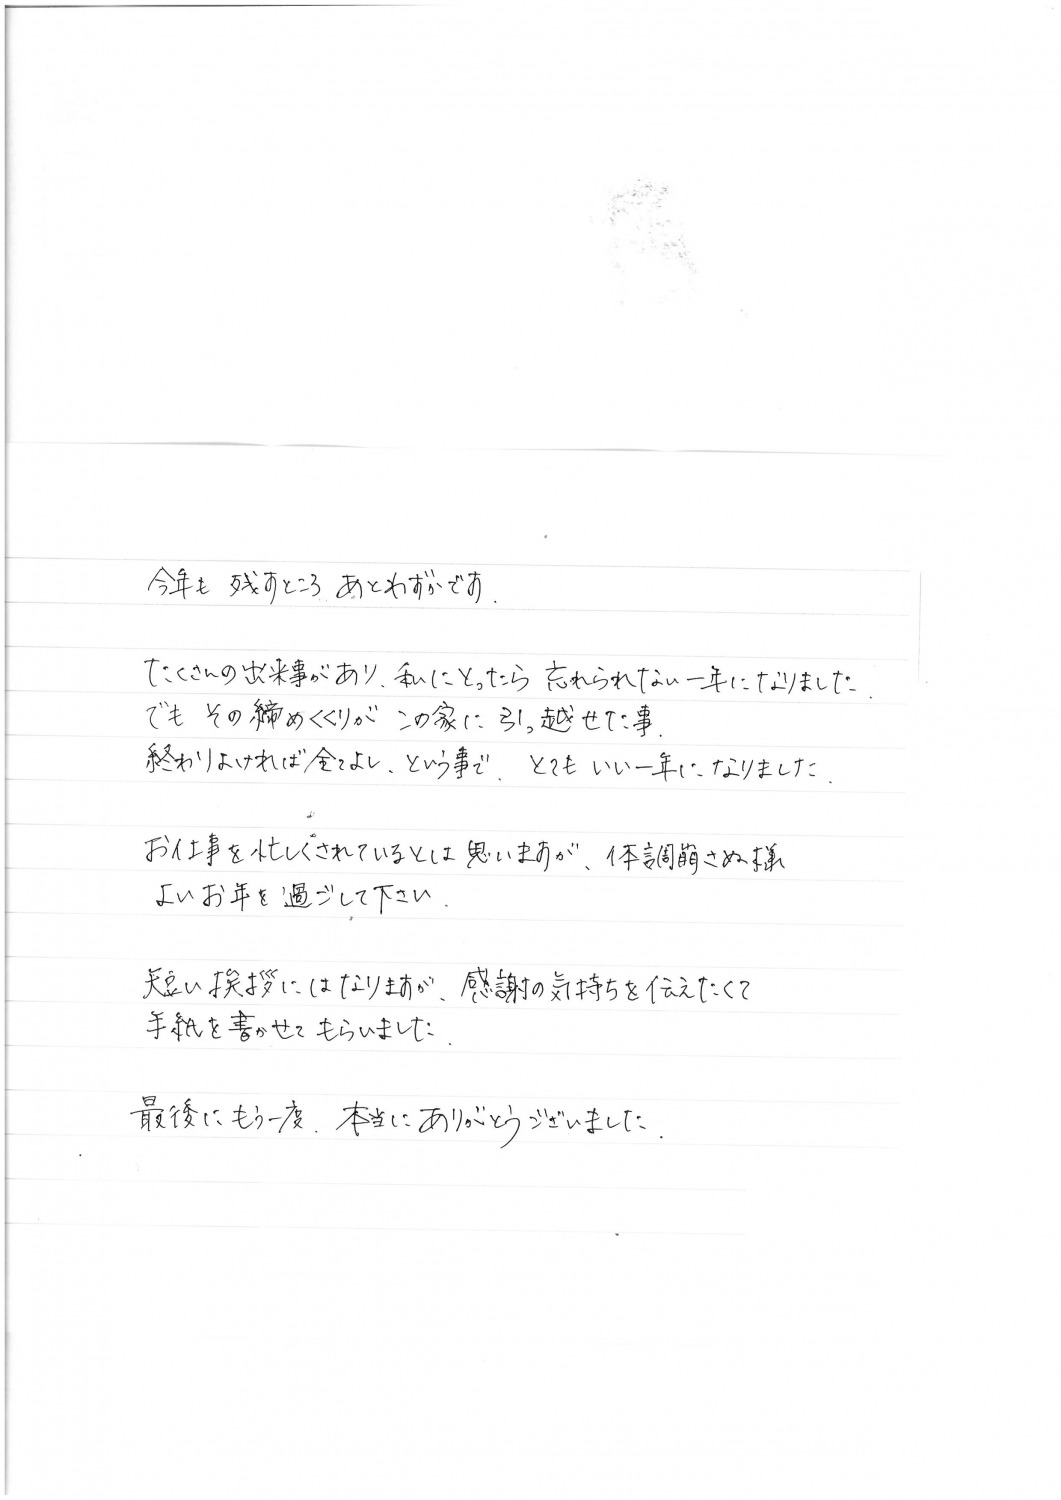 今年も 残すところ あとわずかです.
たくさんの出来事があり、私にとったら 忘れられない一年になりました.
でも その締めくくりが この家に 引っ越せた事.
終わりよければ全てよし、という事で、とても いい一年になりました.
お仕事を忙しくされているとは思いますが、体調崩さぬ様
よいお年を 過ごして下さい.
短い挨拶にはなりますが、感謝の気持ちを伝えたくて
手紙を書かせて もらいました.
最後に もう一度、本当に ありがとうございました.